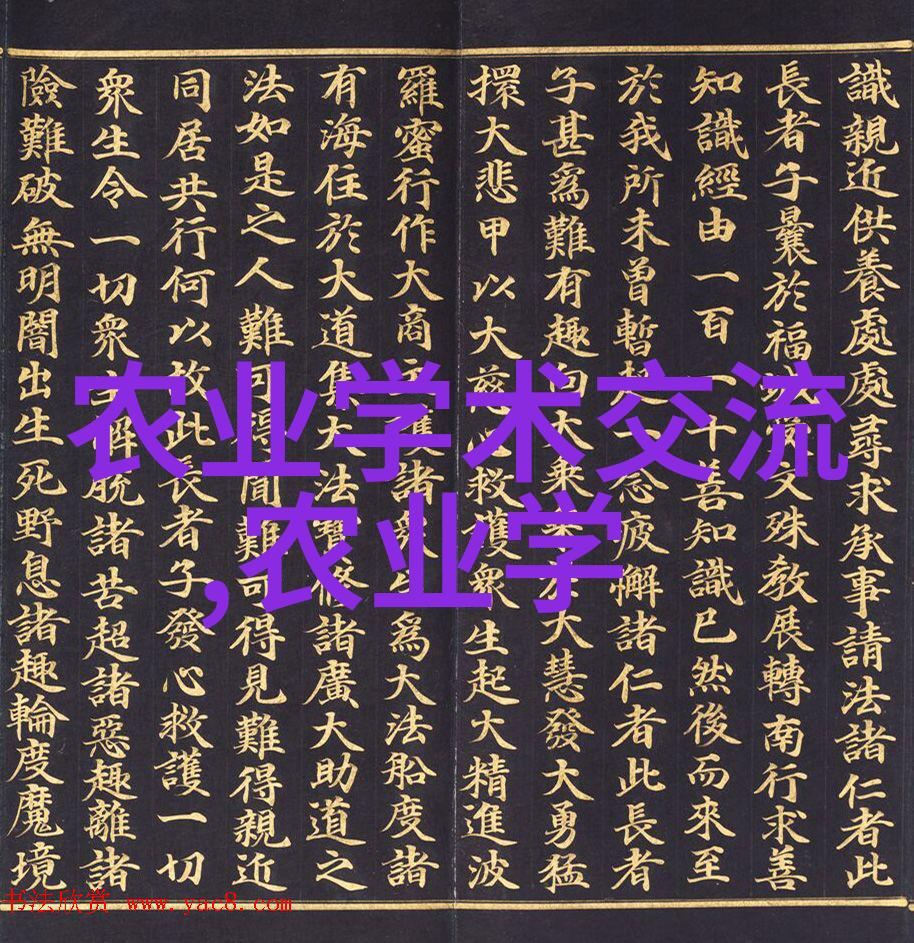 識親近供養處處尋求承事請法諸仁者此
長者子曩於福城受文殊教展轉南行求善
知識經由一百一十善知識已然後而來至
於我所未曾暫起一念疲懈諸仁者此長者
子甚為難有趣向大乘乘於大慧發大勇猛
擐大悲甲以大慈心救護眾生起大精進波
羅蜜行作大商主護諸眾生為大法船度諸
有海住於大道集大法寶修諸廣大助道之
法如是之人難可得聞難可得見難得親近
同居共行何以故此長者子發心救護一切
眾生令一切眾生解脫諸苦超諸惡趣離諸
險難破無明闇出生死野息諸趣輪度魔境
农业学术交流
,农业学
书法欣赏 www.yac8.com